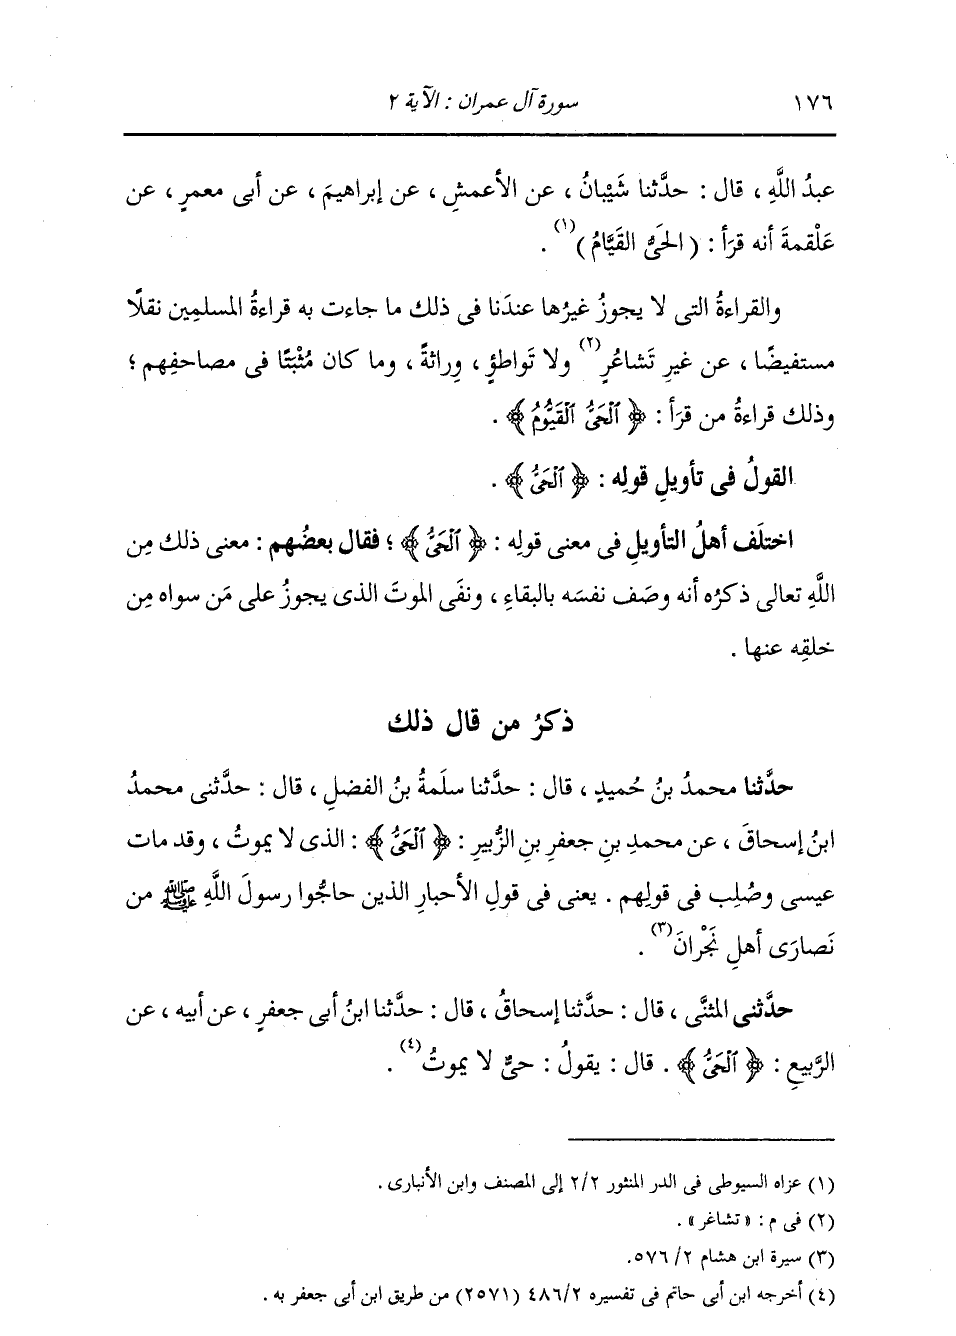 ١٧٦ سورة آل عمران : الآية ٢
عبدُ اللَّهِ ، قال : حدَّثنا شَيْبانُ ، عن الأعمشِ ، عن إبراهيمَ ، عن أبى معمرٍ ، عن
عَلْقمةَ أنه قرَأ : ( الحَىُّ القَيَّامُ )(١) .
والقراءةُ التى لا يجوزُ غيرُها عندَنا فى ذلك ما جاءت به قراءةُ المسلمِين نقلًا
مستفيضًا ، عن غيرِ تَشاعُرٍ(٢) ولا تَواطؤٍ ، وِراثةً ، وما كان مُثْبَتًا فى مصاحفِهم ؛
وذلك قراءةُ من قرَأ : ﴿ ٱلْحَىُّ ٱلْقَيُّومُ ﴾ .
القولُ فى تأويلِ قولِه : ﴿ ٱلْحَىُّ ﴾ .
اختلَف أهلُ التأويلِ فى معنى قولِه : ﴿ ٱلْحَىُّ ﴾ ؛ فقال بعضُهم : معنى ذلك مِن
اللَّهِ تعالى ذكرُه أنه وصَف نفسَه بالبقاءِ ، ونفَى الموتَ الذى يجوزُ على مَن سواه مِن
خلقِه عنها .
ذكرُ من قال ذلك
حدَّثنا محمدُ بنُ حُميدٍ ، قال : حدَّثنا سلَمةُ بنُ الفضلِ ، قال : حدَّثنى محمدُ
ابنُ إسحاقَ ، عن محمدِ بنِ جعفرِ بنِ الزُّبيرِ : ﴿ ٱلْحَىُّ ﴾ : الذى لا يموتُ ، وقد مات
عيسى وصُلِب فى قولِهم . يعنى فى قولِ الأحبارِ الذين حاجُّوا رسولَ اللَّهِ ﷺ من
نَصارَى أهلِ نَجْرانَ(٣) .
حدَّثنى المثنَّى ، قال : حدَّثنا إسحاقُ ، قال : حدَّثنا ابنُ أبى جعفرٍ ، عن أبيه ، عن
الرَّبيعِ : ﴿ ٱلْحَىُّ ﴾ . قال : يقولُ : حىٌّ لا يموتُ(٤) .
(١) عزاه السيوطى فى الدر المنثور ٢/٢ إلى المصنف وابن الأنبارى .
(٢) فى م : « تشاغر » .
(٣) سيرة ابن هشام ٢/ ٥٧٦.
(٤) أخرجه ابن أبى حاتم فى تفسيره ٤٨٦/٢ (٢٥٧١) من طريق ابن أبى جعفر به .